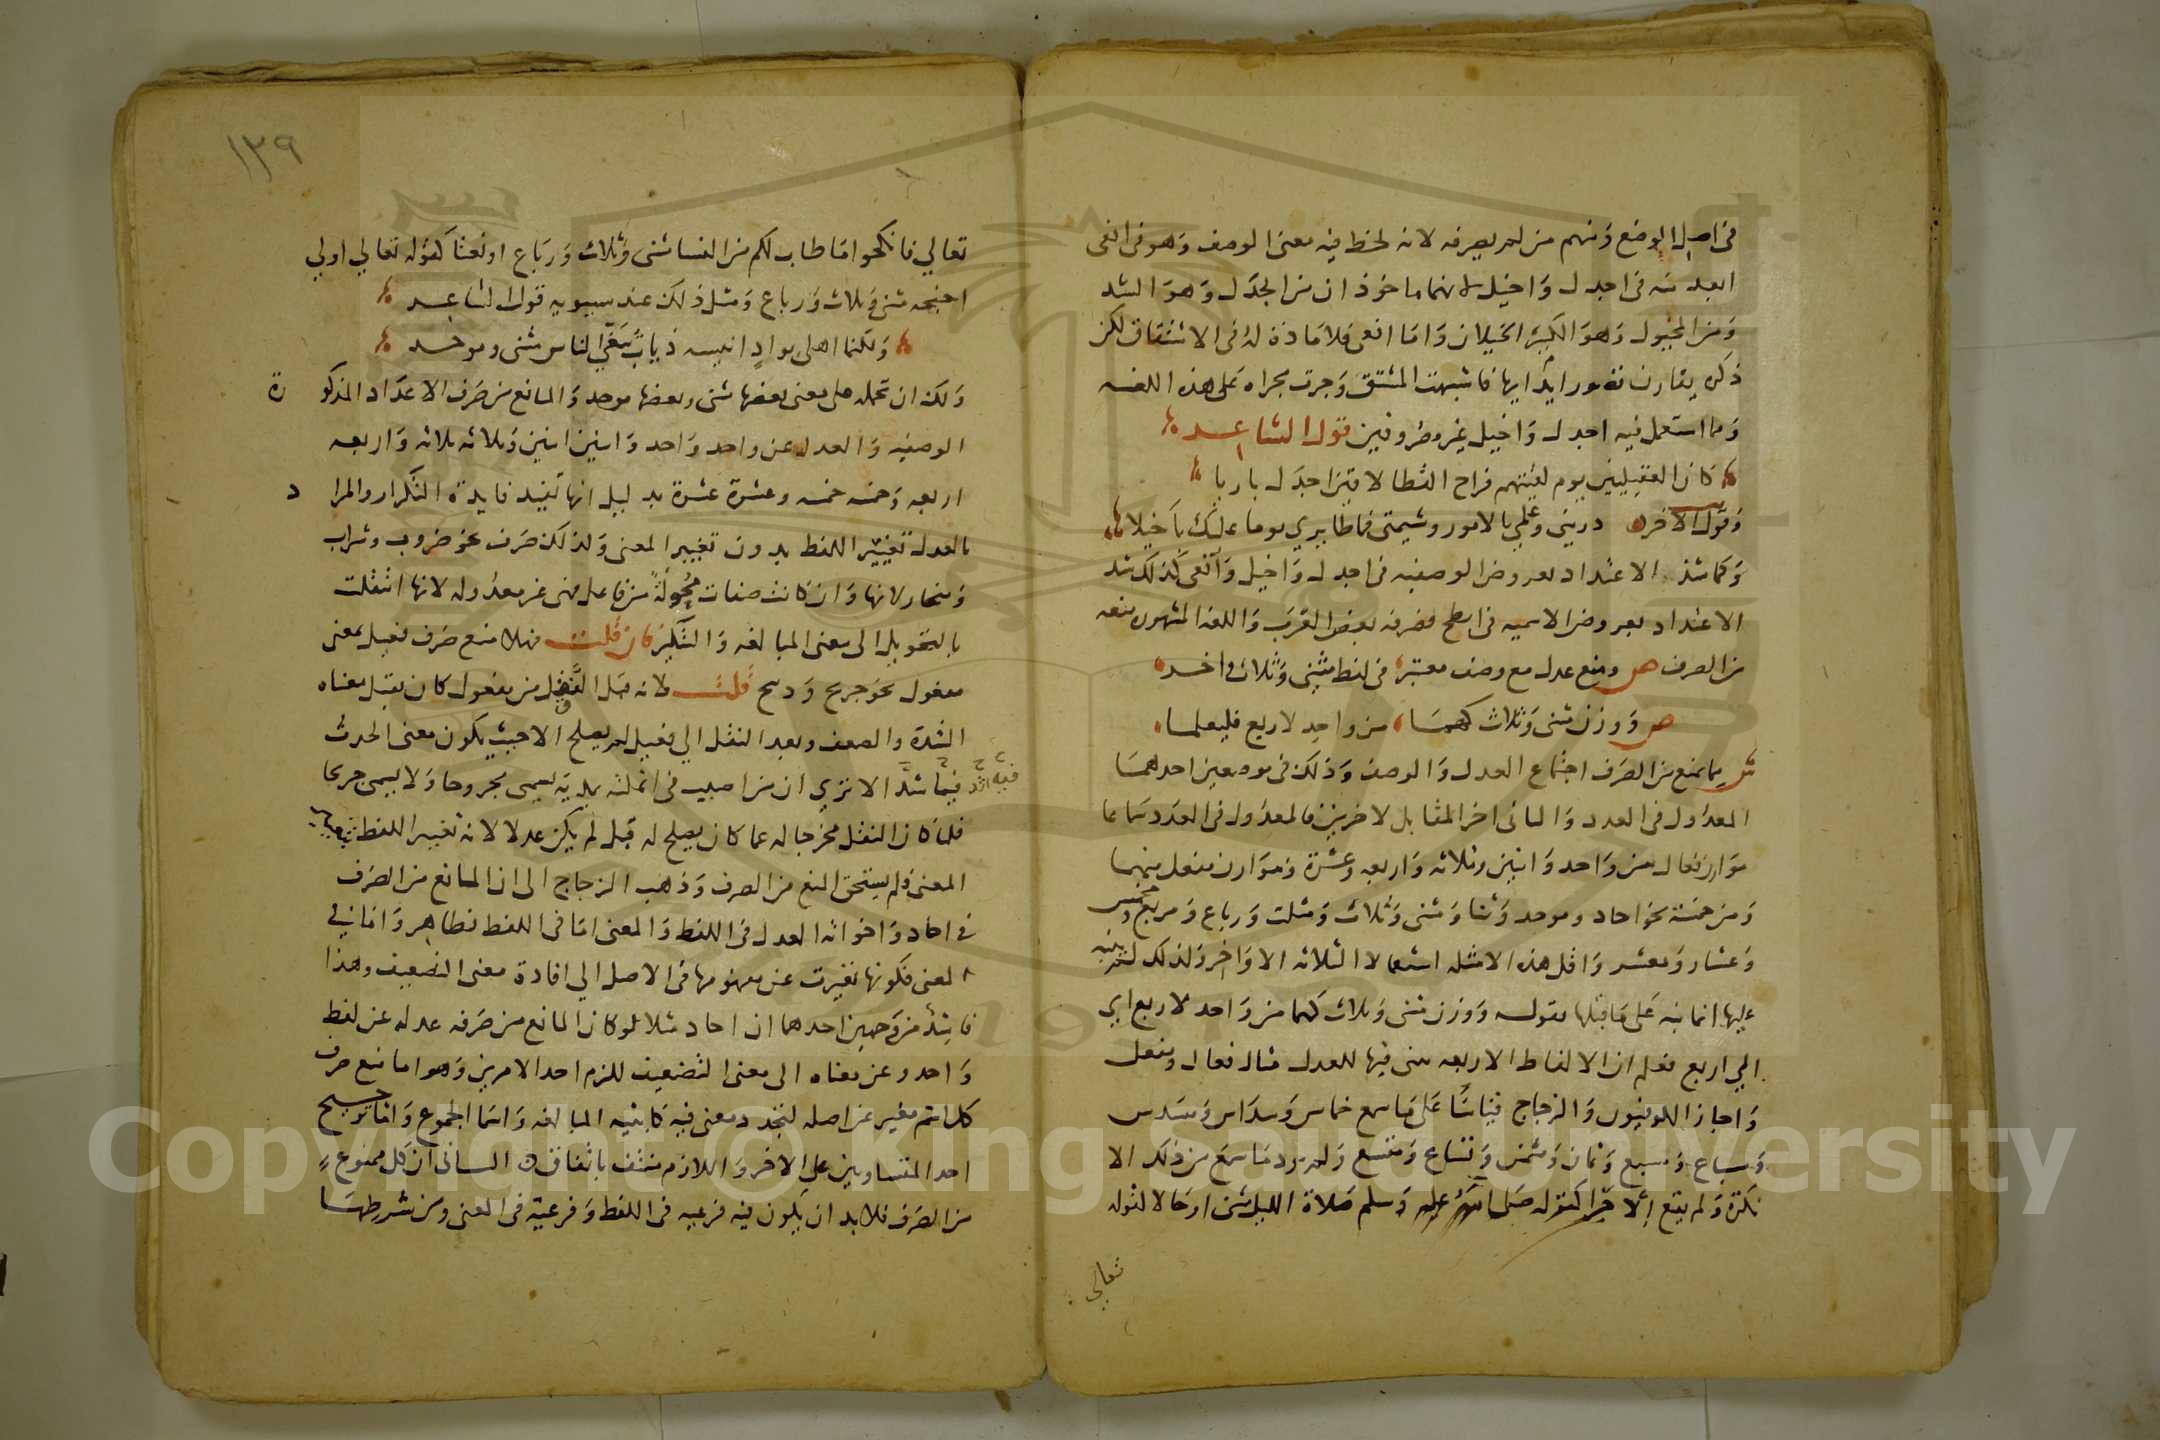 في اصل الوضع ومنهم من لم يصرفه لانه لحظ فيه معنى الوصف وهو في افعى
ابعد منه في اجدل واخيل لانهما ماخوذان من الجدل وهو الشد
ومن المخيول وهو الكثير الخيلان واما افعى فلا مادة له في الاشتقاق لكن
ذكره يقارن تصور ايذايها فاشبهت المشتق وجرت مجراه على هذه اللغه
ومما استعمل فيه اجدل واخيل غير مصروفين قول الشاعر
كان العقيليين يوم لقيتهم فراخ القطا لاقين اجدل بازيا
وقول الاخر ذريني وعلمي بالامور وشيمتي فما طايري يوما عليك باخيلا
وكما شذ الاعتداد بعروض الوصفيه في اجدل واخيل وافعى كذلك شذ
الاعتداد بعروض الاسميه في ابطح فصرفه بعض العرب واللغه المشهوره منعه
من الصرف ص ومنع عدل مع وصف معتبر في لفظ مثنى وثلاث واخر
ص ووزن مثنى وثلاث كهما من واحد لاربع فليعلما
ش مما يمنع من الصرف اجتماع العدل والوصف وذلك في موضعين احدهما
المعدول في العدد والثاني اخر المقابل لاخرين فالمعدول في العدد سماعا
موازن فعال من واحد واثنين وثلاثه واربعه وعشرة وموازن مفعل منهما
ومن خمسة نحو احاد وموحد وثنا ومثنى وثلاث ومثلث ورباع ومربع ومخمس
وعشار ومعشر واقل هذه الامثله استعمالا الثلاثه الاواخر ولذلك لم ينبه
عليها انما نبه على ما قبلها بقوله ووزن مثنى وثلاث كهما من واحد لاربع اي
الي اربع فعلم ان الالفاظ الاربعه بنى فيها للعدل مثال فعال ومفعل
واجاز الكوفيون والزجاج قياسا على ما سمع خماس وسداس ومسدس
وسباع ومسبع وثمان ومثمن وتساع ومتسع ولم يرد ما سمع من ذلك الا
نكرة ولم يقع الا خبرا كقوله صلى الله عليه وسلم صلاة الليل مثنى او حالا كقوله
تعالي
١٣٩
تعالي فانكحوا ما طاب لكم من النسا مثنى وثلاث ورباع او نعتا كقوله تعالي اولي
اجنحه مثنى وثلاث ورباع ومثل ذلك عند سيبويه قول الشاعر
ولكنما اهلى بواد انيسه ذياب تبغى الناس مثنى وموحد
ولك ان تحمله على معنى بعضها مثنى وبعضها موحد والمانع من صرف الاعداد المذكورة
الوصفيه والعدل عن واحد واحد واثنين اثنين وثلاثه ثلاثه واربعه
اربعه وخمسه خمسه وعشرة عشرة بدليل انها تفيد فايدة التكرار والمراد
بالعدل تغيير اللفظ بدون تغيير المعنى ولذلك صرف نحو ضروب وشراب
ومنحار لانها وان كانت صفات محولة من فاعل فهى غير معدوله لانها انتقلت
بالتحويل الى معنى المبالغه والتكثير فان قلت فهلا منع صرف فعيل بمعنى
مفعول نحو جريح وذبيح قلت لانه قبل النقل من مفعول كان يقبل معناه
الشدة والضعف وبعد النقل الي فعيل لم يصلح الا حيث يكون معنى الحدث
فيما شد الا ترى ان من اصيب في انملته بمدية يسمى مجروحا ولا يسمى جريحا
فيه اشد
فلما كان النقل مخرجا له عما كان يصلح له قبل لم يكن عدلا لانه تغيير اللفظ
المعنى فلم يستحق المنع من الصرف وذهب الزجاج الى ان المانع من الصرف
في احاد واخواته العدل في اللفظ والمعنى اما في اللفظ فظاهر واما في
المعنى فلكونها تغيرت عن مفهومها في الاصل الي افادة معنى التضعيف وهذا
فاسد من وجهين احدهما ان احاد مثلا لو كان المانع من صرفه عدله عن لفظ
واحد وعن معناه الى معنى التضعيف للزم احد الامرين وهو اما منع صرف
كل اسم مغير عن اصله لتجدد معنى فيه كابنيه المبالغه واسما الجموع واما ترجيح
احد المتساويين على الاخر واللازم منتف باتفاق الثاني ان كل ممنوع
من الصرف فلا بد ان يكون فيه فرعيه في اللفظ وفرعية في المعنى ومن شرطها
Copyright © King Saud University